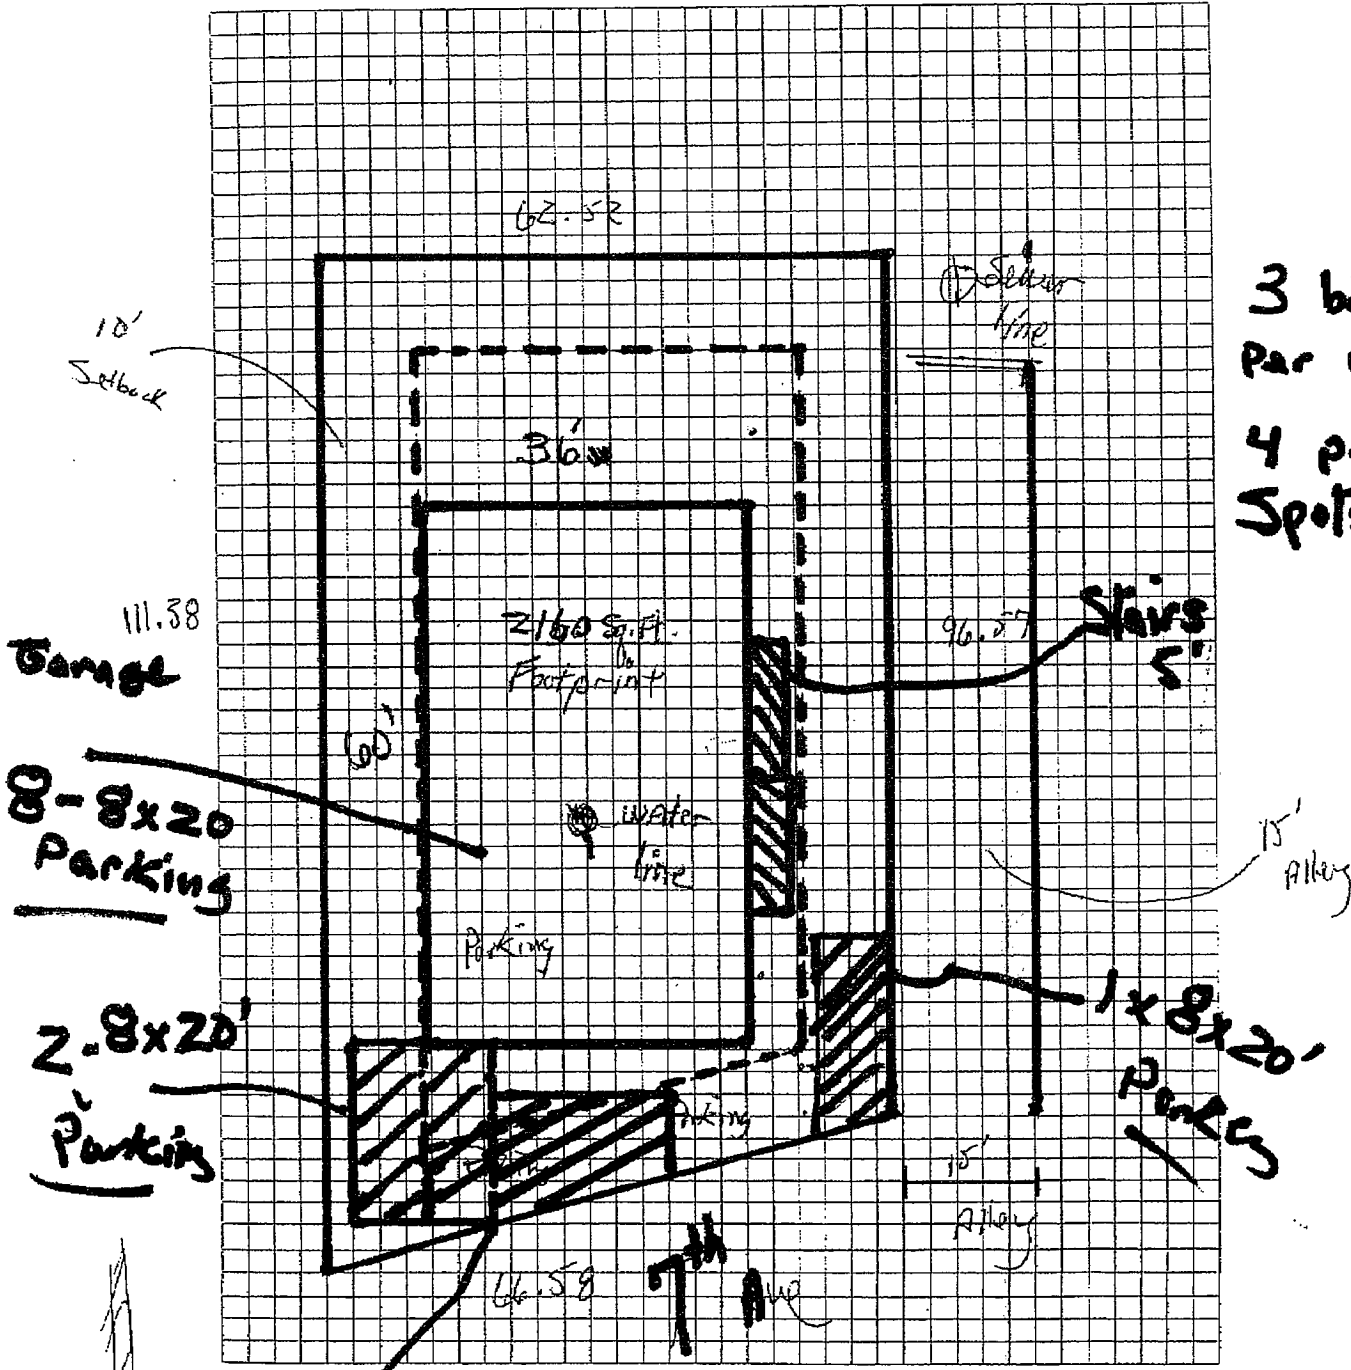 62.52
Sewer
line
10'
Setback
3
Per
4
Spots
36'
111.38
Garage
2160 Sq. Ft.
Footprint
96.57
Stairs
5'
60'
8-8x20
Parking
water
line
15'
Alley
Parking
2-8x20'
Parking
1x8x20'
Parking
15'
Alley
66.58
7th Ave